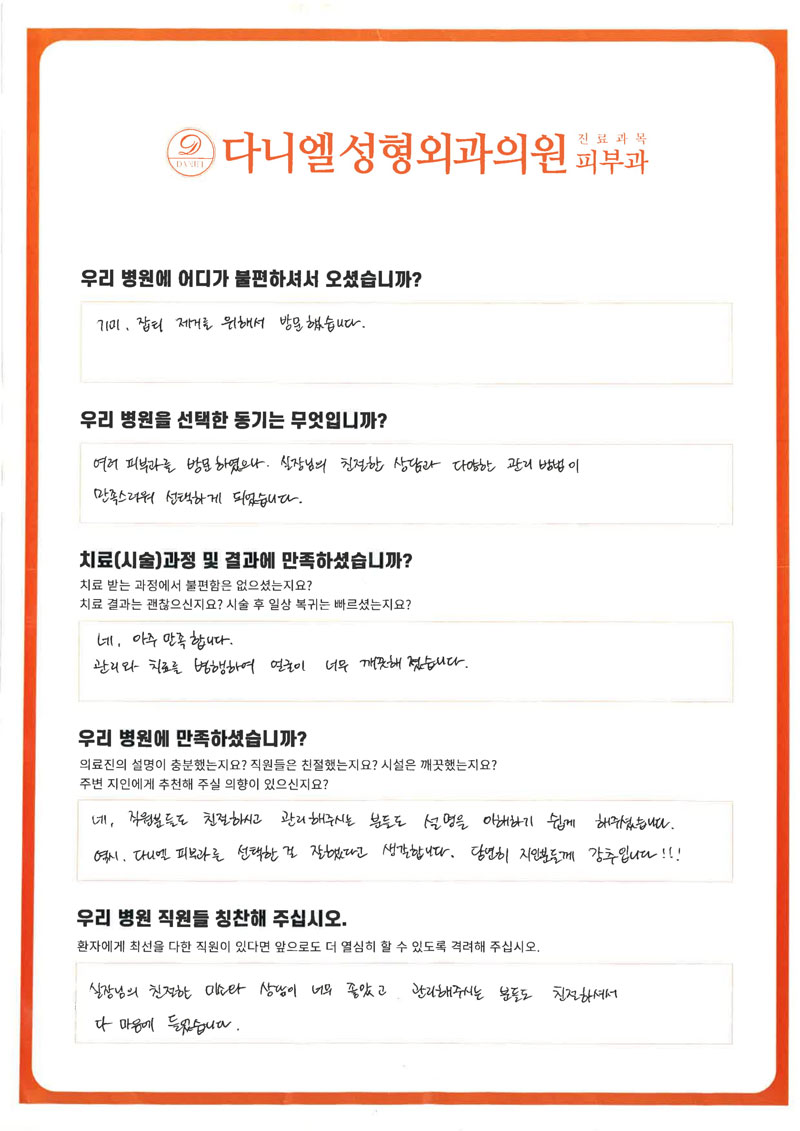 DANIEL
다니엘성형외과의원 진료과목 피부과
우리 병원에 어디가 불편하셔서 오셨습니까?
기미, 잡티 제거를 위해서 방문했습니다.
우리 병원을 선택한 동기는 무엇입니까?
여러 피부과를 방문하였으나. 실장님의 친절한 상담과 다양한 관리 방법이
만족스러워 선택하게 되었습니다.
치료(시술)과정 및 결과에 만족하셨습니까?
치료 받는 과정에서 불편함은 없으셨는지요?
치료 결과는 괜찮으신지요? 시술 후 일상 복귀는 빠르셨는지요?
네, 아주 만족합니다.
관리와 치료를 병행하여 얼굴이 너무 깨끗해 졌습니다.
우리 병원에 만족하셨습니까?
의료진의 설명이 충분했는지요? 직원들은 친절했는지요? 시설은 깨끗했는지요?
주변 지인에게 추천해 주실 의향이 있으신지요?
네, 직원분들도 친절하시고 관리해주시는 분들도 설명을 이해하기 쉽게 해주셨습니다.
역시. 다니엘 피부과를 선택한 걸 잘했다고 생각합니다. 당연히 지인분들께 강추입니다!!!
우리 병원 직원들 칭찬해 주십시오.
환자에게 최선을 다한 직원이 있다면 앞으로도 더 열심히 할 수 있도록 격려해 주십시오.
실장님의 친절한 미소와 상담이 너무 좋았고 관리해주시는 분들도 친절하셔서
다 마음에 들었습니다.